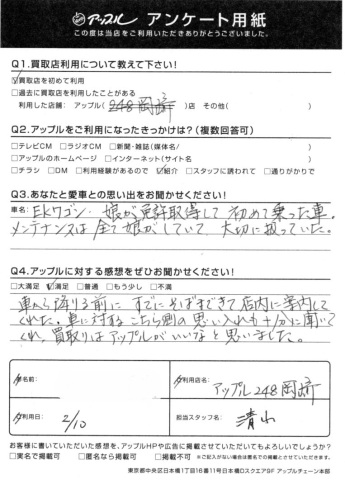 アップル アンケート用紙
この度は当店をご利用いただきありがとうございました。
Q1.買取店利用について教えて下さい!
☑買取店を初めて利用
□過去に買取店を利用したことがある
利用した店舗: アップル( 248岡崎 )店 その他( )
Q2.アップルをご利用になったきっかけは?(複数回答可)
□テレビCM □ラジオCM □新聞・雑誌(媒体名/ )
□アップルのホームページ □インターネット(サイト名 )
□チラシ □DM □利用経験があるので ☑紹介 □スタッフに誘われて □通りがかりで
Q3.あなたと愛車との思い出をお聞かせください!
車名: EKワゴン. 娘が免許取得して初めて乗った車。
メンテナンスは全て娘がしていて、大切に扱っていた。
Q4.アップルに対する感想をぜひお聞かせください!
□大満足 ☑満足 □普通 □もう少し □不満
車から降りる前に すでにそばまできて店内に案内して
くれた。車に対するこちら側の思い入れも十分に聞いて
くれ、買取りはアップルがいいなと思いました。
お名前:
ご利用店名:
アップル248岡崎
ご利用日: 2/10
担当スタッフ名: 清水
お客様に書いていただいた感想を、アップルHPや広告に掲載させていただいてもよろしいでしょうか?
□実名で掲載可 □匿名なら掲載可 □掲載不可 ※ご記入がない場合は匿名での掲載とさせていただきます。
東京都中央区日本橋1丁目16番11号日本橋Dスクエア9F アップルチェーン本部